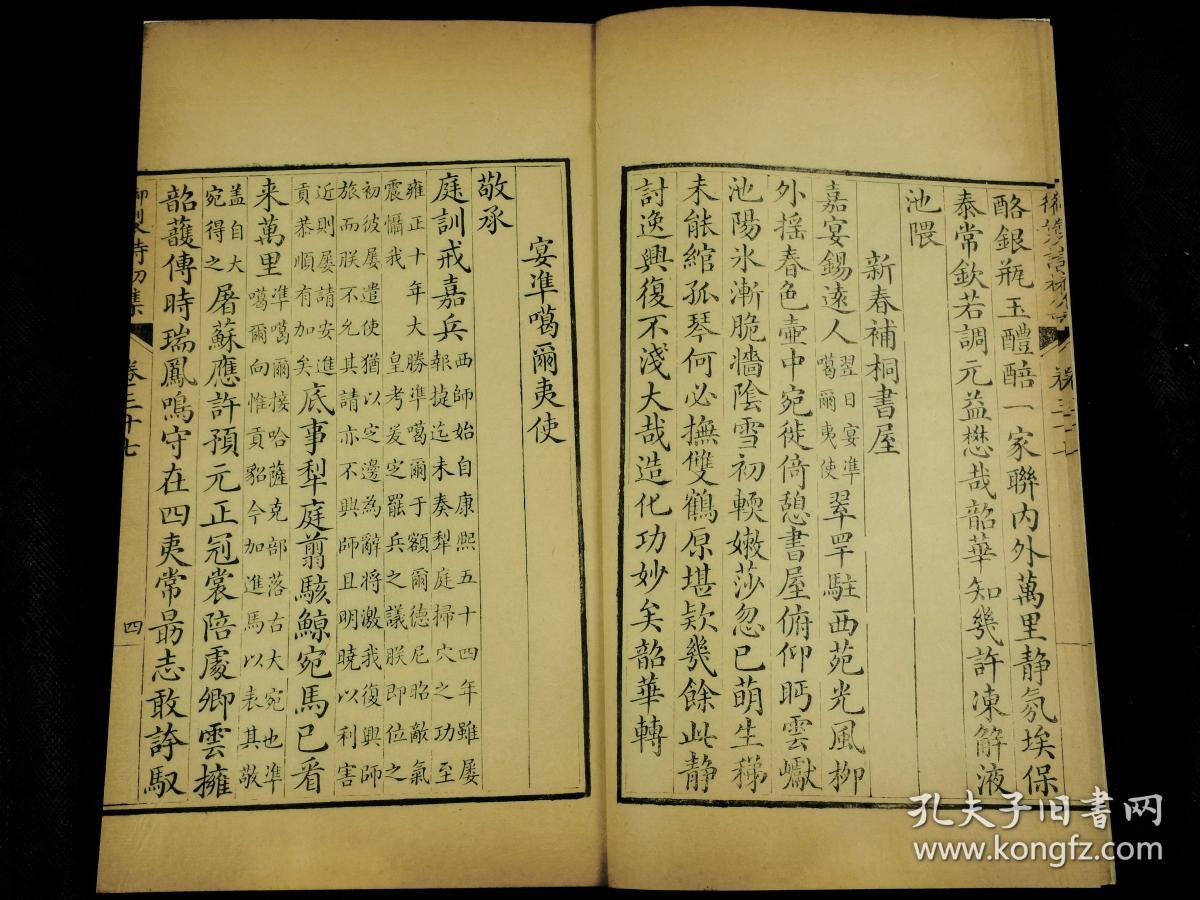 酪銀瓶玉醴醅一家聯内外萬里静氛埃保
泰常欽若調元益懋哉韶華知幾許凍解液
池隈
新春補桐書屋
嘉宴錫遠人翌日宴準噶爾夷使翠罕駐西苑光風柳
外揺春色壺中宛徙倚憩書屋俯仰眄雲巘
池陽氷漸脆墻陰雪初輭嫩莎忽已萌生稊
未能綰孤琴何必撫雙鶴原堪欵幾餘此静
討逸興復不淺大哉造化功妙矣韶華轉
宴準噶爾夷使
敬承
庭訓戒嘉兵西師始自康熙五十四年雖屢報捷迄未奏犁庭掃穴之功至
雍正十年大勝準噶爾于額爾德尼昭敵氣震懾我皇考爰定罷兵之議朕即位之
初彼屢遣使猶以定邊為辭將激我復興師旅而朕不允其請亦不興師且明曉以利害
近則屢請安進貢恭順有加矣底事犁庭翦駭鯨宛馬已看
来萬里準噶爾接哈薩克部落古大宛也準噶爾向惟貢貂今加進馬以表其敬
盖自大宛得之屠蘇應許預元正冠裳陪處卿雲擁
韶頀傳時瑞鳳鳴守在四夷常朂志敢誇馭
御製詩初集 卷三十七 四
孔夫子旧书网
www.kongfz.com